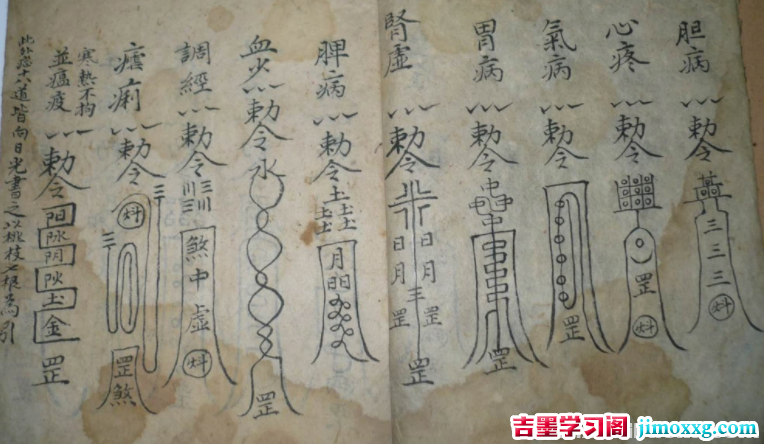 胆病
勅令
三三三
罡
心疼
勅令
罡
氣病
勅令
罡
胃病
勅令
罡
腎虛
勅令
日月
日月
罡
罡
脾病
勅令
土土土
月
血少
勅令
水
罡
調經
勅令
煞中虛
罡
瘧痢
勅令
罡煞
寒熱不拘
並瘟疫
勅令
土
金
罡
此外症十六道皆向日光書之以桃枝七根為引
吉墨学习阁
jimoxxg.com